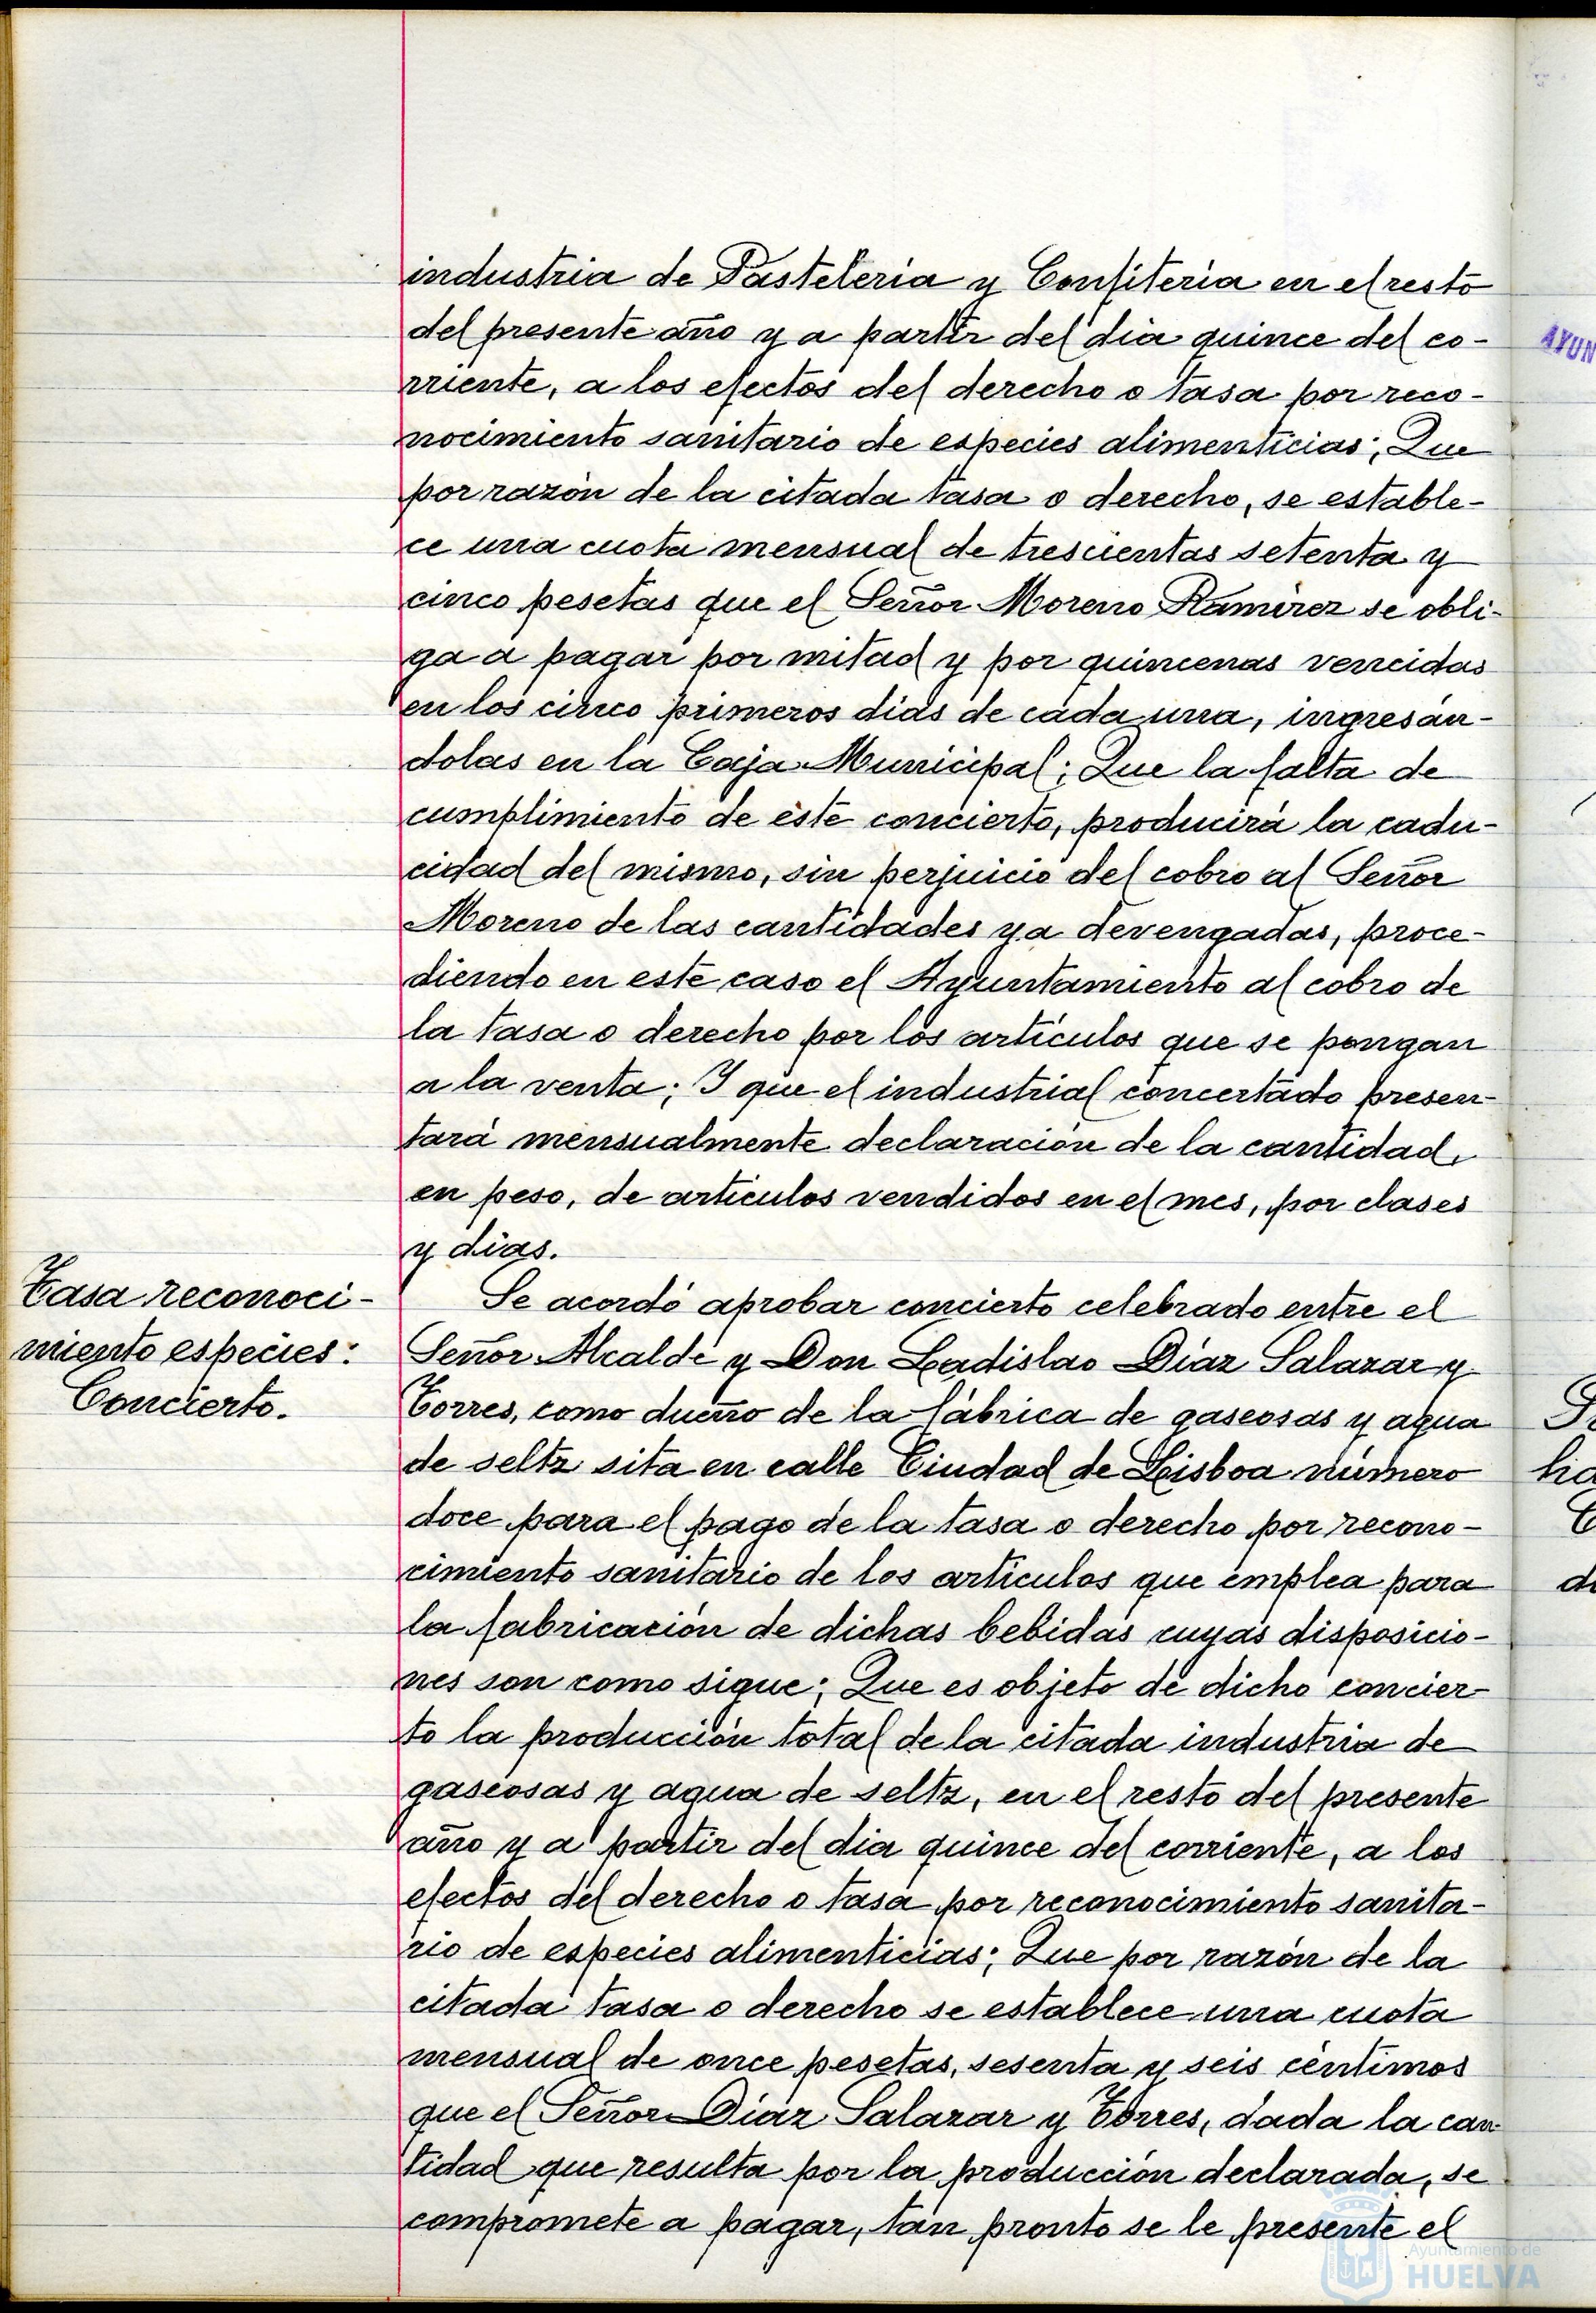 industria de Pastelería y Confitería en el resto
del presente año y a partir del día quince del co-
rriente, a los efectos del derecho o tasa por reco-
nocimiento sanitario de especies alimenticias; Que
por razón de la citada tasa o derecho, se estable-
ce una cuota mensual de trescientas setenta y
cinco pesetas que el Señor Moreno Ramírez se obli-
ga a pagar por mitad y por quincenas vencidas
en los cinco primeros días de cada una, ingresán-
dolas en la Caja Municipal; Que la falta de
cumplimiento de éste concierto, producirá la cadu-
cidad del mismo, sin perjuicio del cobro al Señor
Moreno de las cantidades ya devengadas, proce-
diendo en este caso el Ayuntamiento al cobro de
la tasa o derecho por los artículos que se pongan
a la venta; Y que el industrial concertado presen-
tará mensualmente declaración de la cantidad,
en peso, de artículos vendidos en el mes, por clases
y días.
Tasa reconoci-
miento especies:
Concierto.
Se acordó aprobar concierto celebrado entre el
Señor Alcalde y Don Ladislao Díaz Salazar y
Torres, como dueño de la fábrica de gaseosas y agua
de seltz sita en calle Ciudad de Lisboa número
doce para el pago de la tasa o derecho por recono-
cimiento sanitario de los artículos que emplea para
la fabricación de dichas bebidas cuyas disposicio-
nes son como sigue; Que es objeto de dicho concier-
to la producción total de la citada industria de
gaseosas y agua de seltz, en el resto del presente
año y a partir del día quince del corriente, a los
efectos del derecho o tasa por reconocimiento sanita-
rio de especies alimenticias; Que por razón de la
citada tasa o derecho se establece una cuota
mensual de once pesetas, sesenta y seis céntimos
que el Señor Díaz Salazar y Torres, dada la can-
tidad que resulta por la producción declarada, se
compromete a pagar, tan pronto se le presente el
AYUN
ha
Ayuntamiento de
HUELVA